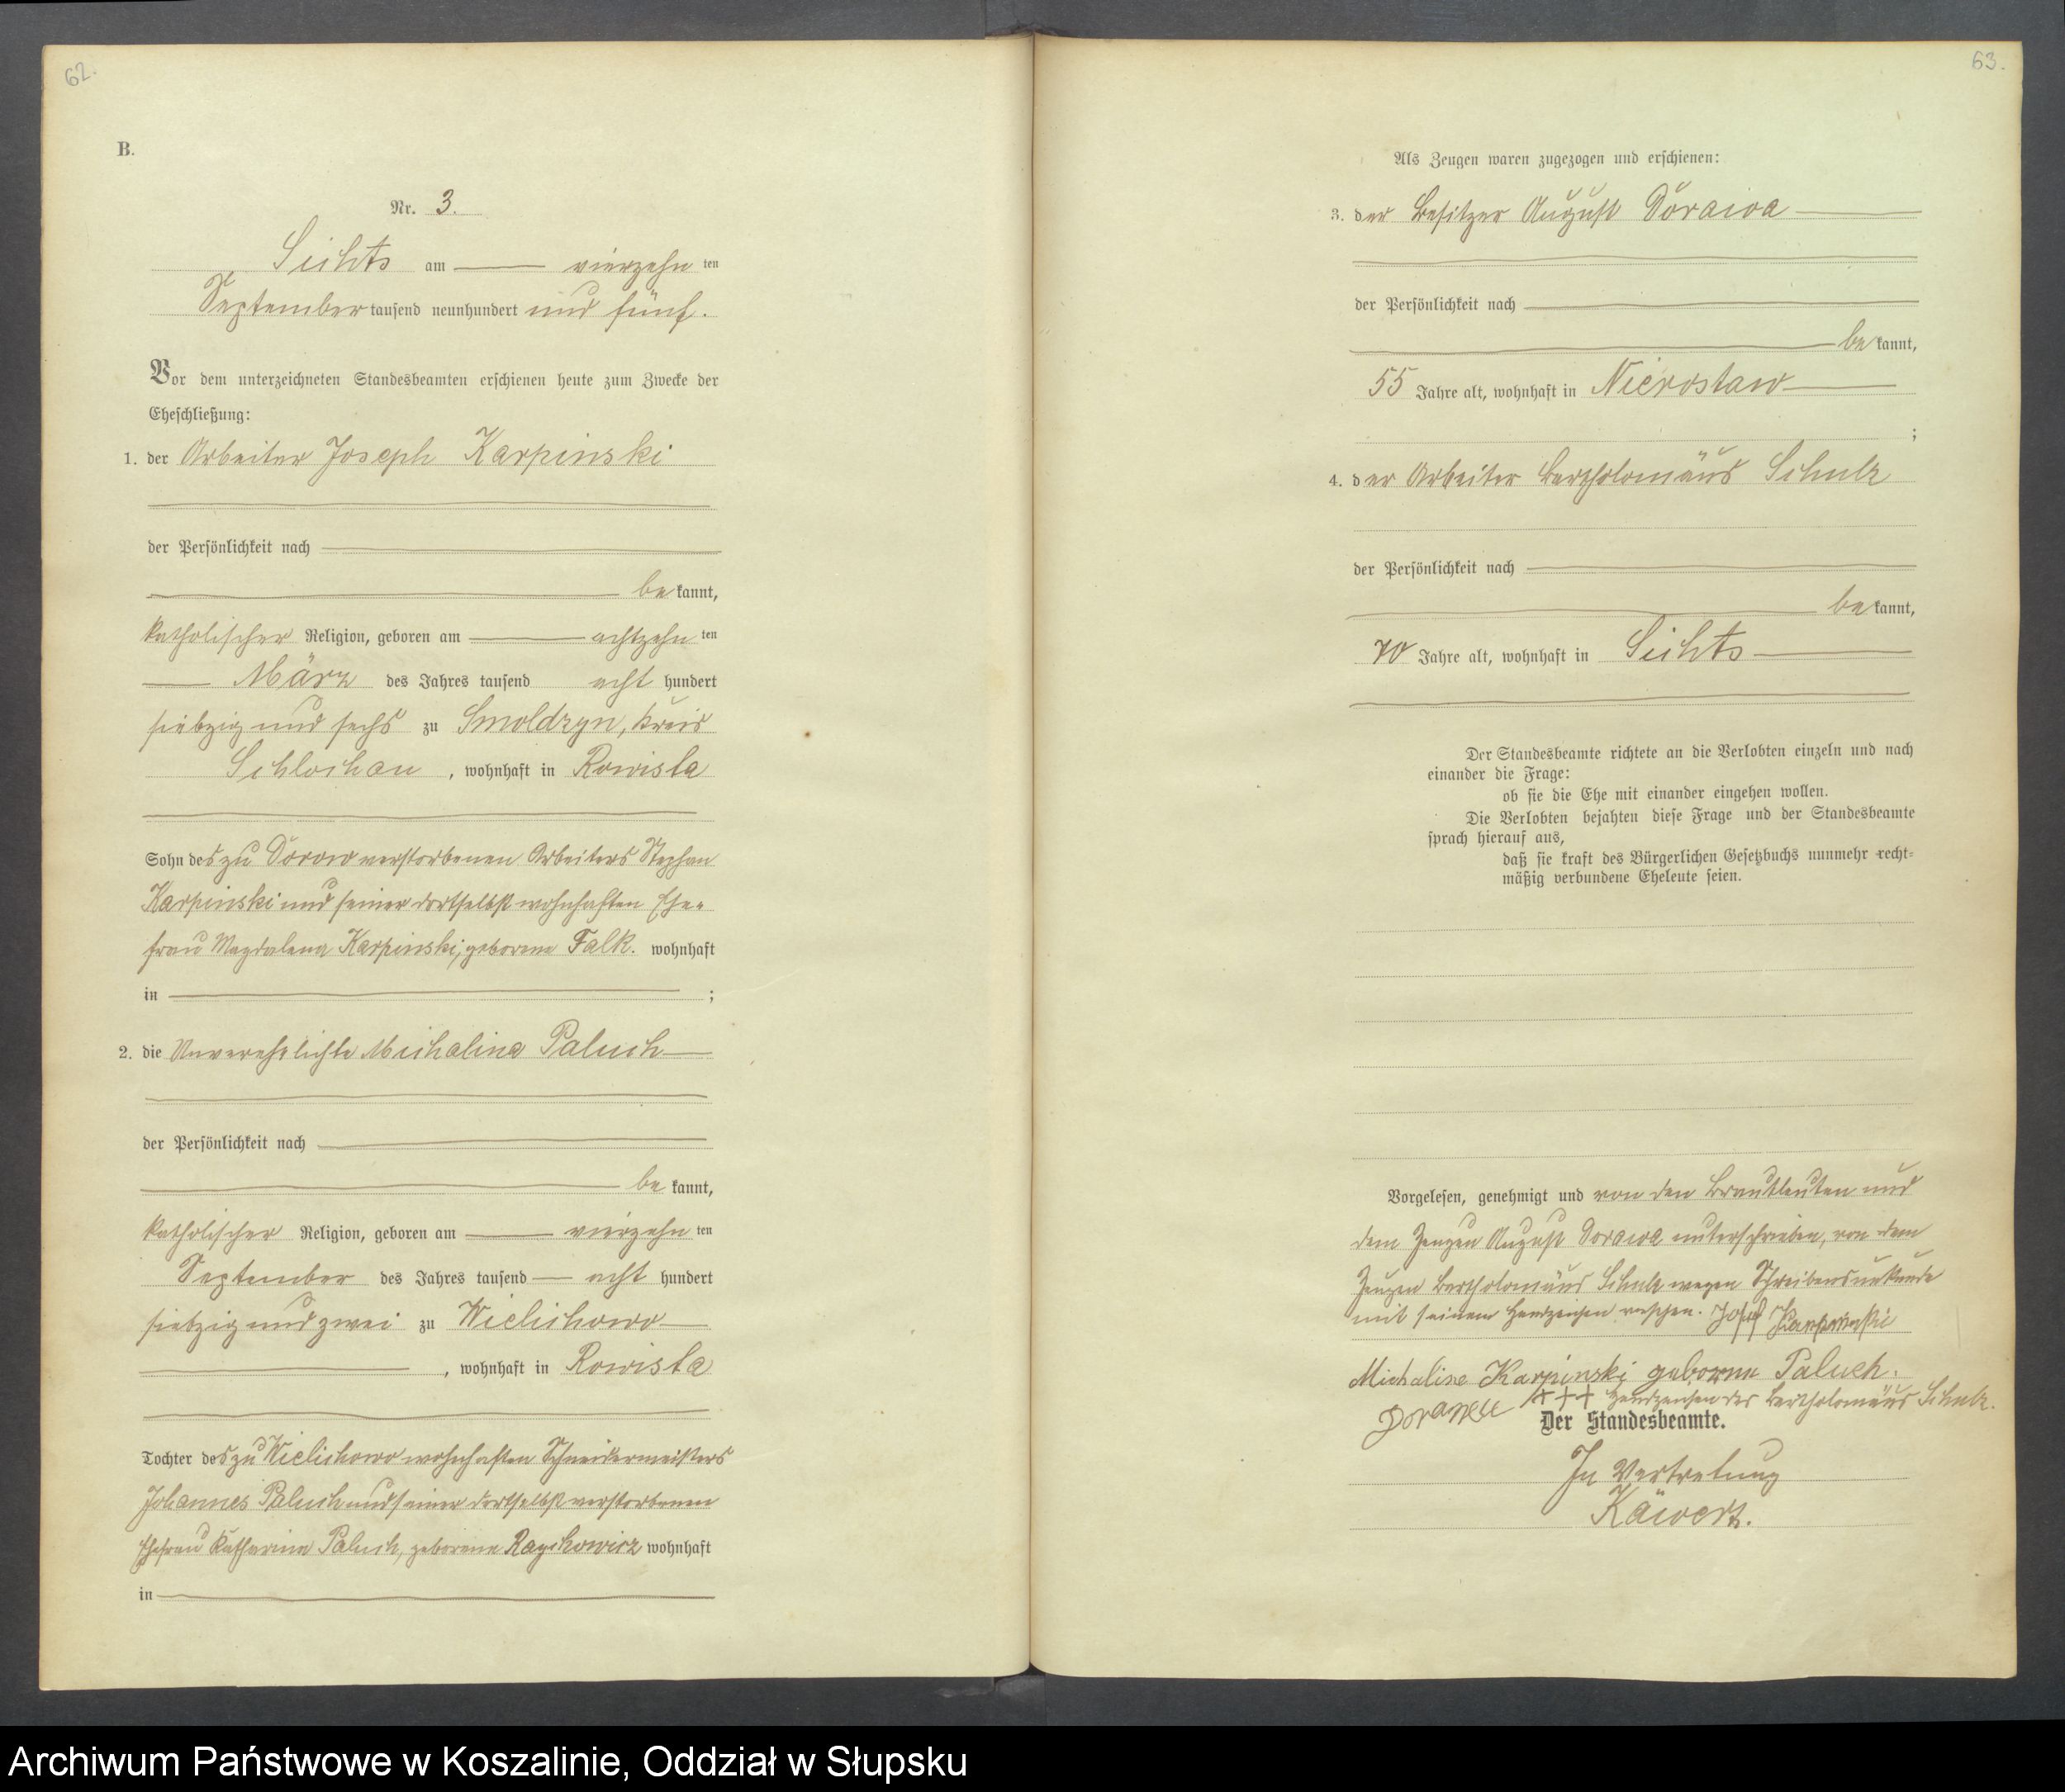 62.
B.
Nr. 3.
Sichts am vierzehn ten
September tausend neunhundert und fünf.
Vor dem unterzeichneten Standesbeamten erschienen heute zum Zwecke der
Eheschließung:
1. der Arbeiter Joseph Karpinski
der Persönlichkeit nach
be kannt,
katholischer Religion, geboren am achtzehn ten
März des Jahres tausend acht hundert
siebzig und sechs zu Smoldzyn, Kreis
Schlochau, wohnhaft in Rowista
Sohn des zu verstorbenen Arbeiters Stephan
Karpinski und seiner dortselbst wohnhaften Ehe-
frau Magdalena Karpinski, geborene Falk. wohnhaft
in ;
2. die Unverehelichte Michalina Paluch
der Persönlichkeit nach
be kannt,
katholischer Religion, geboren am vierzehn ten
September des Jahres tausend acht hundert
siebzig und zwei zu Wielichowo
, wohnhaft in Rowista
Tochter des zu Wielichowo wohnhaften Schneidermeisters
Johannes Paluch und seiner dortselbst verstorbenen
Ehefrau Katharina Paluch, geborene wohnhaft
in
63.
Als Zeugen waren zugezogen und erschienen:
3. der Besitzer August Dorawa
der Persönlichkeit nach
be kannt,
55 Jahre alt, wohnhaft in Nierostaw
;
4. der Arbeiter Bartholomäus Schulz
der Persönlichkeit nach
be kannt,
70 Jahre alt, wohnhaft in Sichts
Der Standesbeamte richtete an die Verlobten einzeln und nach
einander die Frage:
ob sie die Ehe mit einander eingehen wollen.
Die Verlobten bejahten diese Frage und der Standesbeamte
sprach hierauf aus,
daß sie kraft des Bürgerlichen Gesetzbuchs nunmehr recht-
mäßig verbundene Eheleute seien.
Vorgelesen, genehmigt und von den Brautleuten und
dem Zeugen August Dorawa unterschrieben, von dem
Zeugen Bartholomäus Schulz wegen Schreibensunkunde
mit seinem Handzeichen versehen. Josef Karpinski
Michalina Karpinski geborne Paluch.
+++ Handzeichen des Bartholomäus Schulz.
Dorawa
Der Standesbeamte.
In Vertretung
Käwert.
Archiwum Państwowe w Koszalinie, Oddział w Słupsku